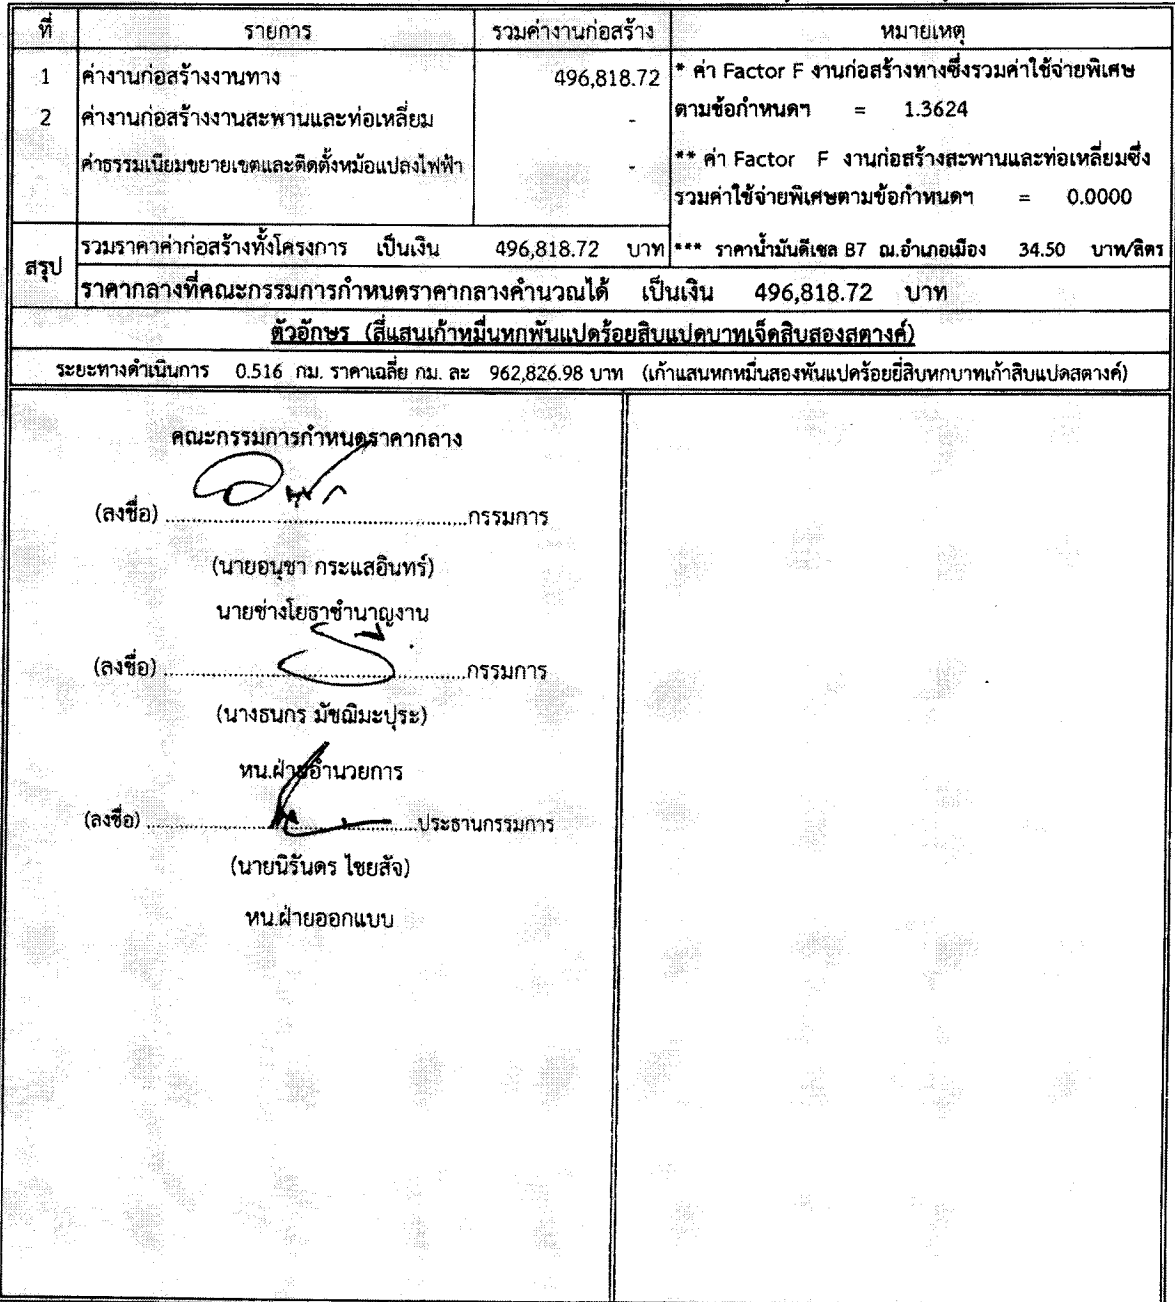 ที่ รายการ รวมค่างานก่อสร้าง หมายเหตุ
1 ค่างานก่อสร้างงานทาง 496,818.72 * ค่า Factor F งานก่อสร้างทางซึ่งรวมค่าใช้จ่ายพิเศษ
2 ค่างานก่อสร้างงานสะพานและท่อเหลี่ยม - ตามข้อกำหนดฯ = 1.3624
ค่าธรรมเนียมขยายเขตและติดตั้งหม้อแปลงไฟฟ้า - ** ค่า Factor F งานก่อสร้างสะพานและท่อเหลี่ยมซึ่ง
รวมค่าใช้จ่ายพิเศษตามข้อกำหนดฯ = 0.0000
สรุป รวมราคาค่าก่อสร้างทั้งโครงการ เป็นเงิน 496,818.72 บาท *** ราคาน้ำมันดีเซล B7 ณ.อำเภอเมือง 34.50 บาท/ลิตร
ราคากลางที่คณะกรรมการกำหนดราคากลางคำนวณได้ เป็นเงิน 496,818.72 บาท
ตัวอักษร (สี่แสนเก้าหมื่นหกพันแปดร้อยสิบแปดบาทเจ็ดสิบสองสตางค์)
ระยะทางดำเนินการ 0.516 กม. ราคาเฉลี่ย กม. ละ 962,826.98 บาท (เก้าแสนหกหมื่นสองพันแปดร้อยยี่สิบหกบาทเก้าสิบแปดสตางค์)
คณะกรรมการกำหนดราคากลาง
(ลงชื่อ) ................................................กรรมการ
(นายอนุชา กระแสอินทร์)
นายช่างโยธาชำนาญงาน
(ลงชื่อ) ................................................กรรมการ
(นางธนกร มัชฌิมะปุระ)
หน.ฝ่ายอำนวยการ
(ลงชื่อ) ................................................ประธานกรรมการ
(นายนิรันดร ไชยสัจ)
หน.ฝ่ายออกแบบ